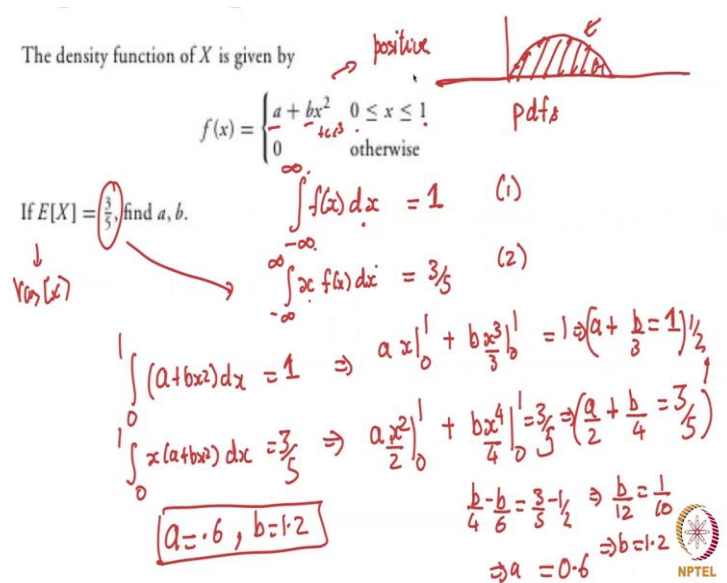 The density function of X is given by
positive
f(x) = { a + bx² 0 ≤ x ≤ 1
+cx³
0 otherwise
pdfs
If E[X] = 3/5, find a, b.
Var(x)
∫_{-∞}^{∞} f(x) dx = 1 (1)
∫_{-∞}^{∞} x f(x) dx = 3/5 (2)
∫_0^1 (a+bx²)dx = 1 ⇒ a x|_0^1 + b x³/3|_0^1 = 1 ⇒ (a + b/3 = 1) 1/2
∫_0^1 x(a+bx²) dx = 3/5 ⇒ a x²/2|_0^1 + bx⁴/4|_0^1 = 3/5 ⇒ (a/2 + b/4 = 3/5)
b/4 - b/6 = 3/5 - 1/2 ⇒ b/12 = 1/10
a = .6 , b = 1.2
⇒ b = 1.2
⇒ a = 0.6
NPTEL